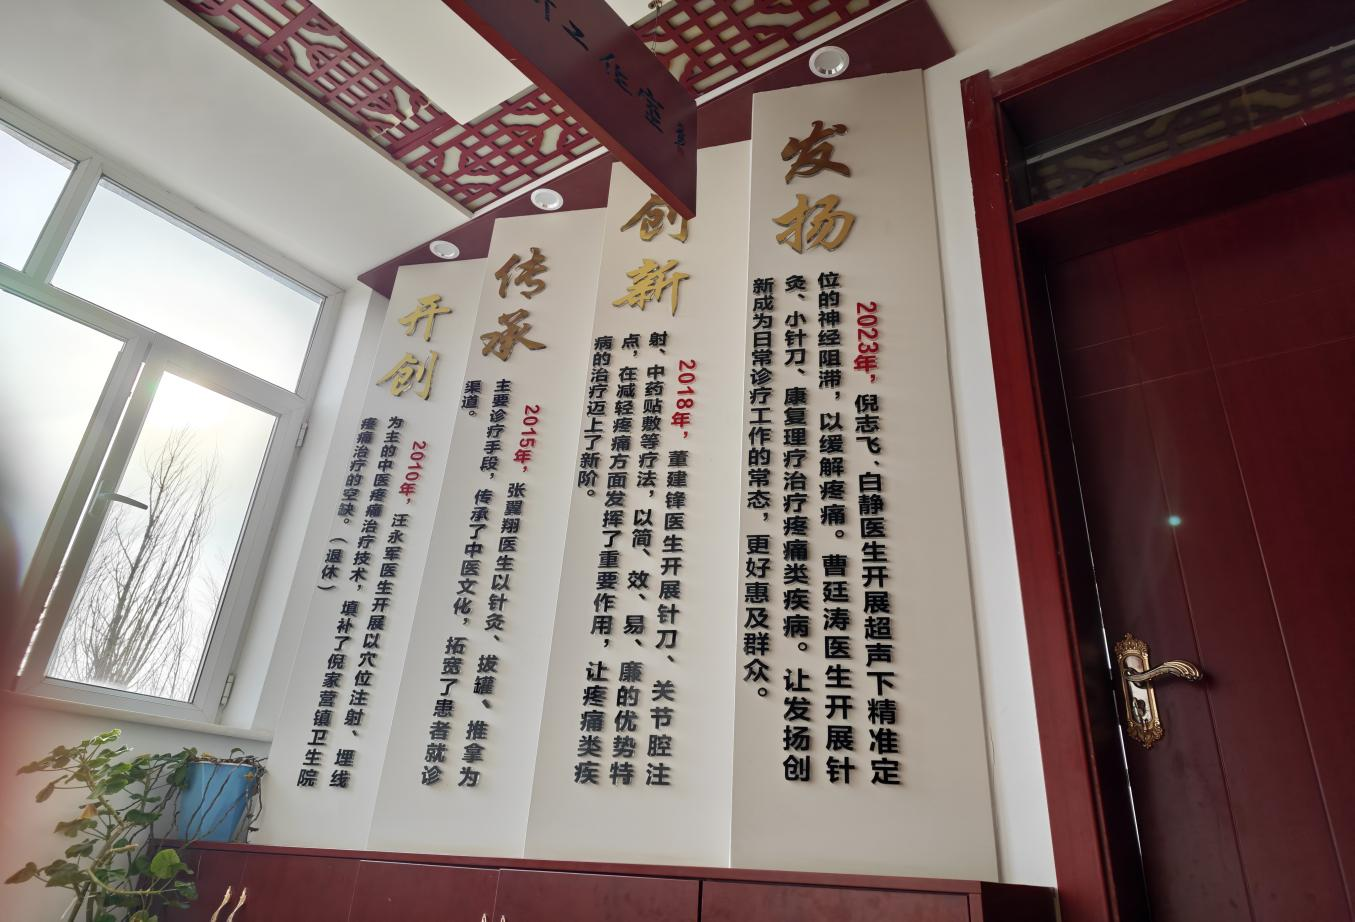 工作室
开创
2010年，汪永军医生开展以穴位注射、埋线
为主的中医疼痛治疗技术，填补了倪家营镇卫生院
疼痛治疗的空缺。（退休）
传承
2015年，张翼翔医生以针灸、拔罐、推拿为
主要诊疗手段，传承了中医文化，拓宽了患者就诊
渠道。
创新
2018年，董建锋医生开展针刀、关节腔注
射、中药贴敷等疗法，以简、效、易、廉的优势特
点，在减轻疼痛方面发挥了重要作用，让疼痛类疾
病的治疗迈上了新阶。
发扬
2023年，倪志飞、白静医生开展超声下精准定
位的神经阻滞，以缓解疼痛。曹廷涛医生开展针
灸、小针刀、康复理疗治疗疼痛类疾病。让发扬创
新成为日常诊疗工作的常态，更好惠及群众。